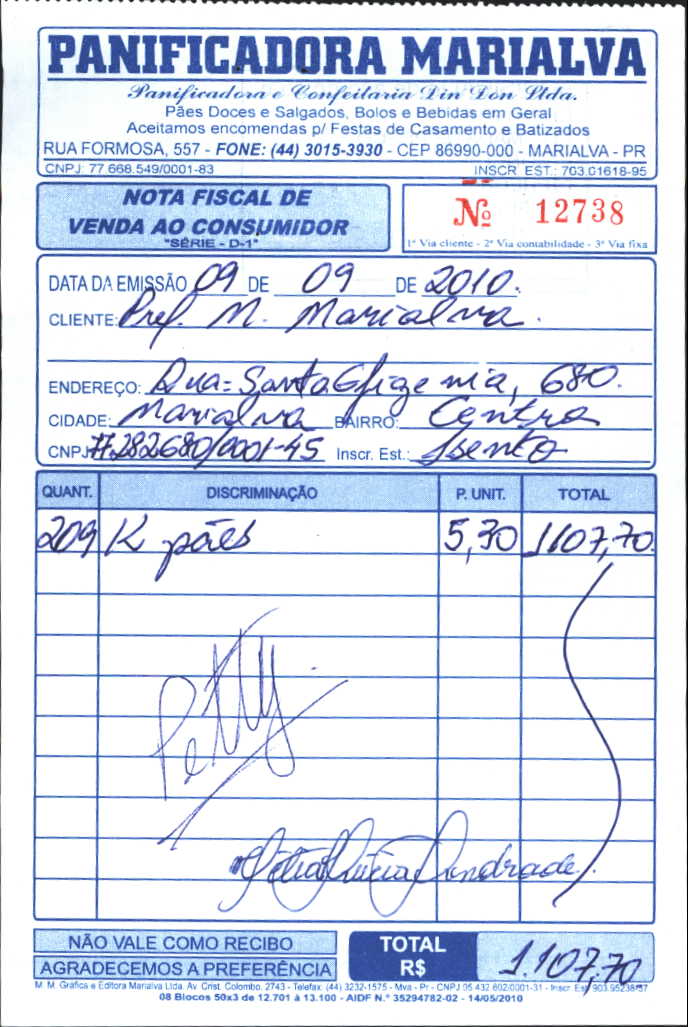 PANIFICADORA MARIALVA
Panificadora e Confeitaria Din Don Ltda.
Pães Doces e Salgados, Bolos e Bebidas em Geral
Aceitamos encomendas p/ Festas de Casamento e Batizados
RUA FORMOSA, 557 - FONE: (44) 3015-3930 - CEP 86990-000 - MARIALVA - PR
CNPJ: 77.668.549/0001-83 INSCR. EST.: 703.01618-95
NOTA FISCAL DE
VENDA AO CONSUMIDOR
"SÉRIE - D-1"
Nº 12738
1ª Via cliente - 2ª Via contabilidade - 3ª Via fixa
DATA DA EMISSÃO 09 DE 09 DE 2010.
CLIENTE: Pref. M. Marialva.
ENDEREÇO: Rua= Santa Efigenia, 680.
CIDADE: Marialva BAIRRO: Centro
CNPJ: 282680/0001-45 Inscr. Est.: Isento
QUANT. DISCRIMINAÇÃO P. UNIT. TOTAL
209 K pães 5,30 1107,70.
Petty
Lúcia Andrade.
NÃO VALE COMO RECIBO
AGRADECEMOS A PREFERÊNCIA
TOTAL R$ 1.107,70
M. M. Gráfica e Editora Marialva Ltda. Av. Crist. Colombo, 2743 - Telefax: (44) 3232-1575 - Mva - Pr - CNPJ 05.432.602/0001-31 - Inscr. Est. 903.95238-37
08 Blocos 50x3 de 12.701 à 13.100 - AIDF N.º 35294782-02 - 14/05/2010